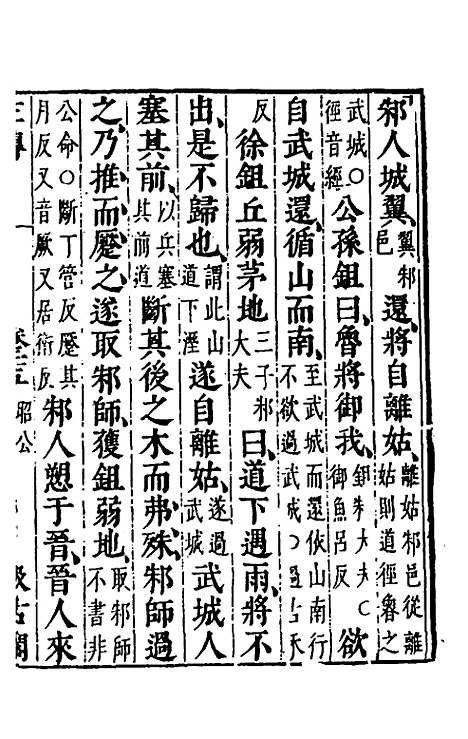 邾人城翼翼邾邑還將自離姑離姑邾邑從離姑則道徑魯之
武城○徑音經公孫鉏曰魯將御我鉏邾大夫○御魚呂反欲
自武城還循山而南至武城而還依山南行不欲過武城○過古禾
反徐鉏丘弱茅地三子邾大夫曰道下遇雨將不
出是不歸也謂此山道下溼遂自離姑遂過武城武城人
塞其前以兵塞其前道斷其後之木而弗殊邾師過
之乃推而蹷之遂取邾師獲鉏弱地取邾師不書非
公命○斷丁管反蹷其月反又音厥又居衛反邾人愬于晉晉人來
昭公
汲古閣